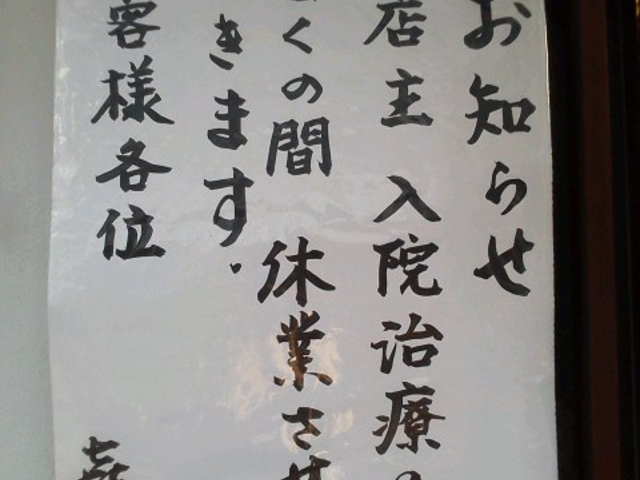 お知らせ
店主 入院治療の
らくの間 休業させ
きます.
客様各位
喜